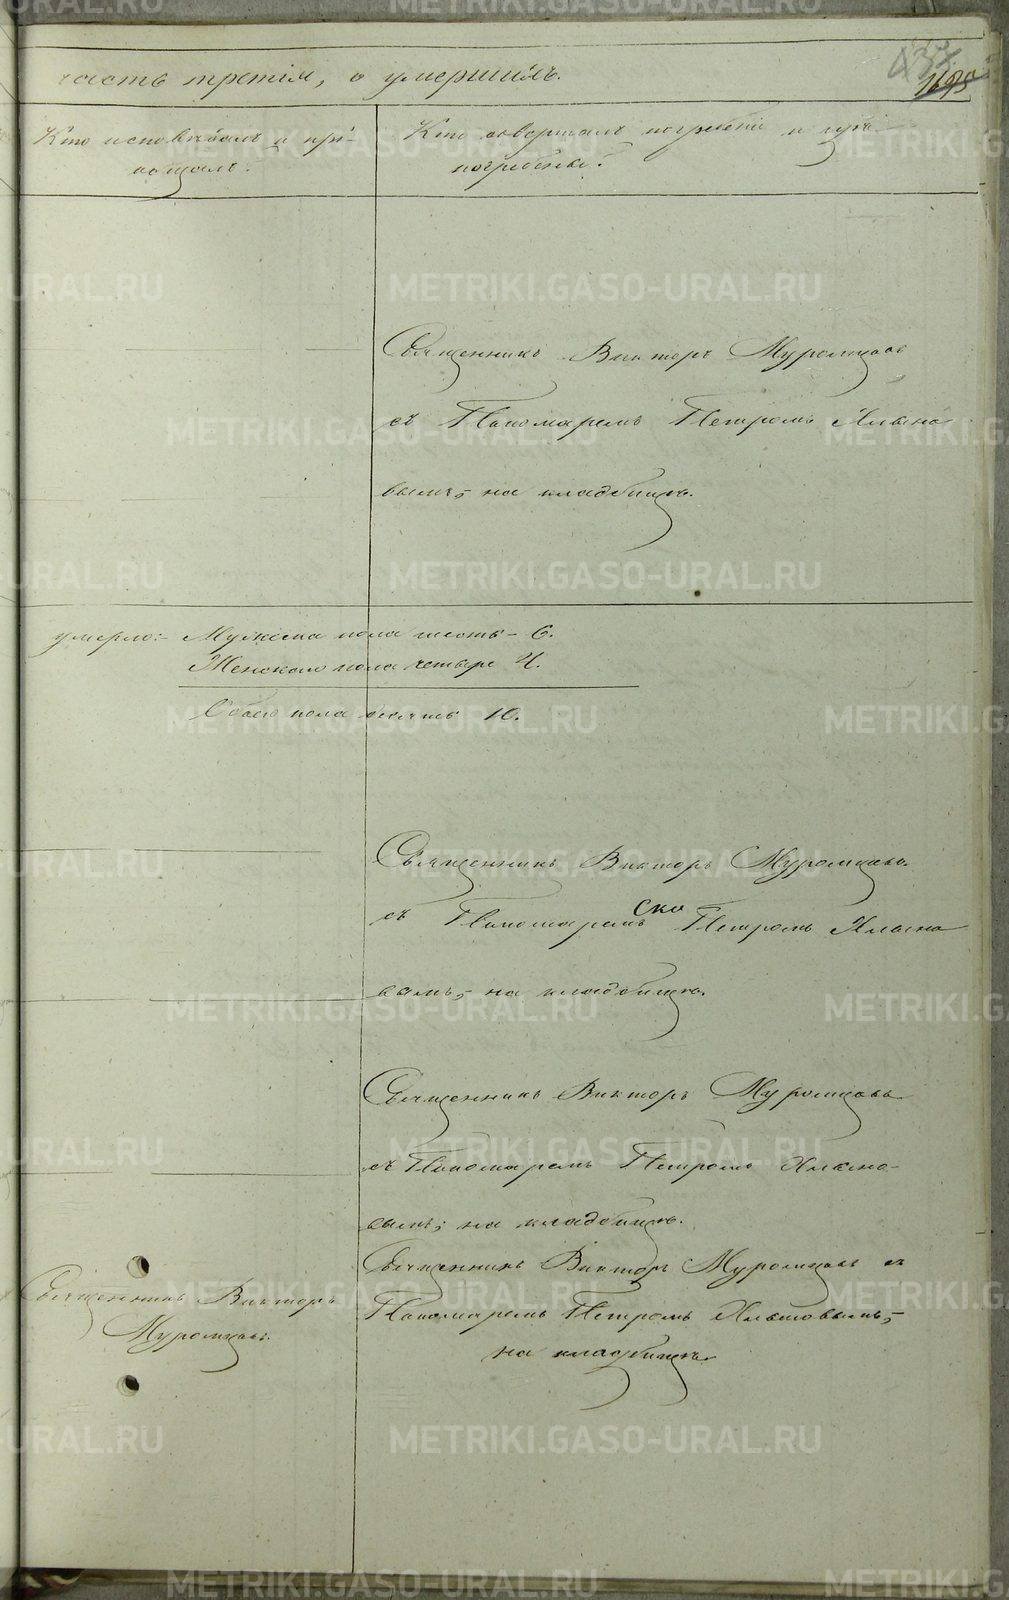 часть третія, о умершихъ.
Кто исповѣдалъ и прі-
общалъ.
Кто совершалъ погребеніе и гдѣ
погребены.
Священникъ Викторъ Муромцовъ
съ Пономаремъ Петромъ
вымъ, на кладбищѣ.
умерло:- Мужеска пола шесть - 6.
Женскаго пола четыре 4.
Обоего пола десять 10.
Священникъ Викторъ Муромцовъ
съ Пономаремъ Петромъ
вымъ, на кладбищѣ.
Священникъ Викторъ Муромцовъ
съ Пономаремъ Петромъ
вымъ; на кладбищѣ.
Священникъ Викторъ Муромцовъ съ
Пономаремъ Петромъ
на кладбищѣ
Священникъ Викторъ
Муромцовъ.
METRIKI.GASO-URAL.RU